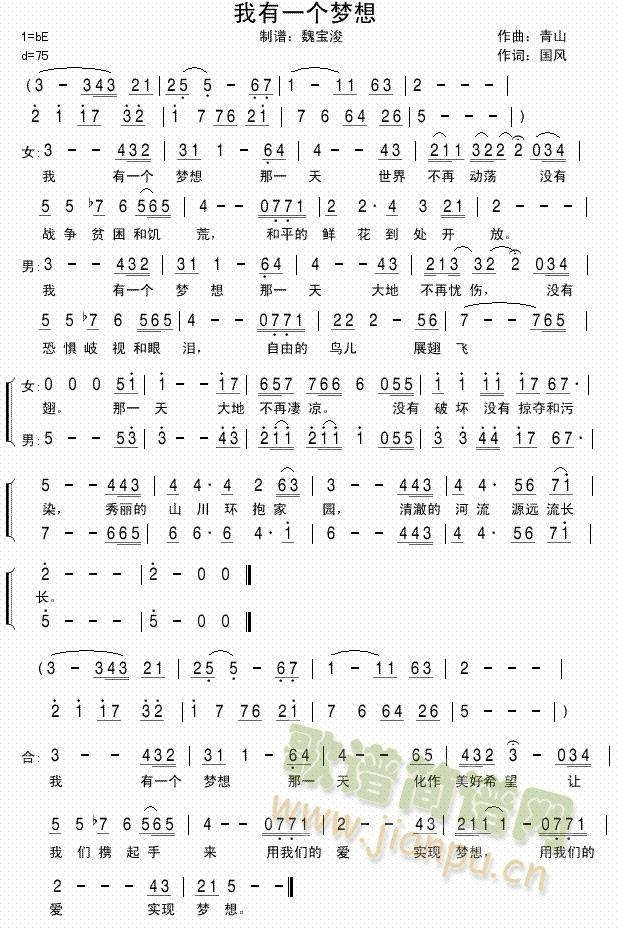 我有一个梦想
1=bE 制谱：魏宝浚 作曲：青山
d=75 作词：国风
(3 - 343 21 | 25 5 - 67 | 1 - 11 63 | 2 - - - |
2 1 17 32 | 1 7 76 21 | 7 6 64 26 | 5 - - - )
女: 3 - - 432 | 31 1 - 64 | 4 - - 43 | 211 322 2 034 |
我 有一个 梦想 那一 天 世界 不再 动荡 没有
5 5 b7 6 565 | 4 - - 0771 | 2 2· 4 3 21 | 2 - - - |
战 争 贫 困 和饥 荒， 和平的 鲜 花 到 处 开 放。
男: 3 - - 432 | 31 1 - 64 | 4 - - 43 | 213 32 2 034 |
我 有一个 梦 想 那一 天 大地 不再忧 伤， 没有
5 5 b7 6 565 | 4 - - 0771 | 22 2 - 56 | 7 - - 765 |
恐 惧 歧 视 和眼 泪， 自由的 鸟儿 展翅 飞
女: 0 0 0 51 | 1 - - 17 | 657 766 6 055 | 1 1 11 17 67· |
翅。 那一 天 大地 不再凄 凉。 没有 破 坏 没有 掠夺和污
男: 5 - - 53 | 3 - - 43 | 211 211 1 055 | 3 3 44 17 67· |
5 - - 443 | 4 4· 4 2 63 | 3 - - 443 | 4 4· 56 71 |
染， 秀丽的 山 川 环 抱 家 园， 清澈的 河 流 源远 流长
7 - - 665 | 6 6· 6 4· 1 | 6 - - 443 | 4 4· 56 71 |
2 - - - | 2 - 0 0 ‖
长。
5 - - - | 5 - 0 0 ‖
(3 - 343 21 | 25 5 - 67 | 1 - 11 63 | 2 - - - |
2 1 17 32 | 1 7 76 21 | 7 6 64 26 | 5 - - - )
合: 3 - - 432 | 31 1 - 64 | 4 - - 65 | 432 3 - 034 |
我 有一个 梦想 那一 天 化作 美好希 望 让
5 5 b7 6 565 | 4 - - 0771 | 2 - - 43 | 211 1 - 0771 |
我 们 携 起 手 来 用我们的 爱 实现 梦想， 用我们的
2 - - 43 | 21 5 - - ‖
爱 实现 梦 想。
歌谱简谱网
www.jianpu.cn